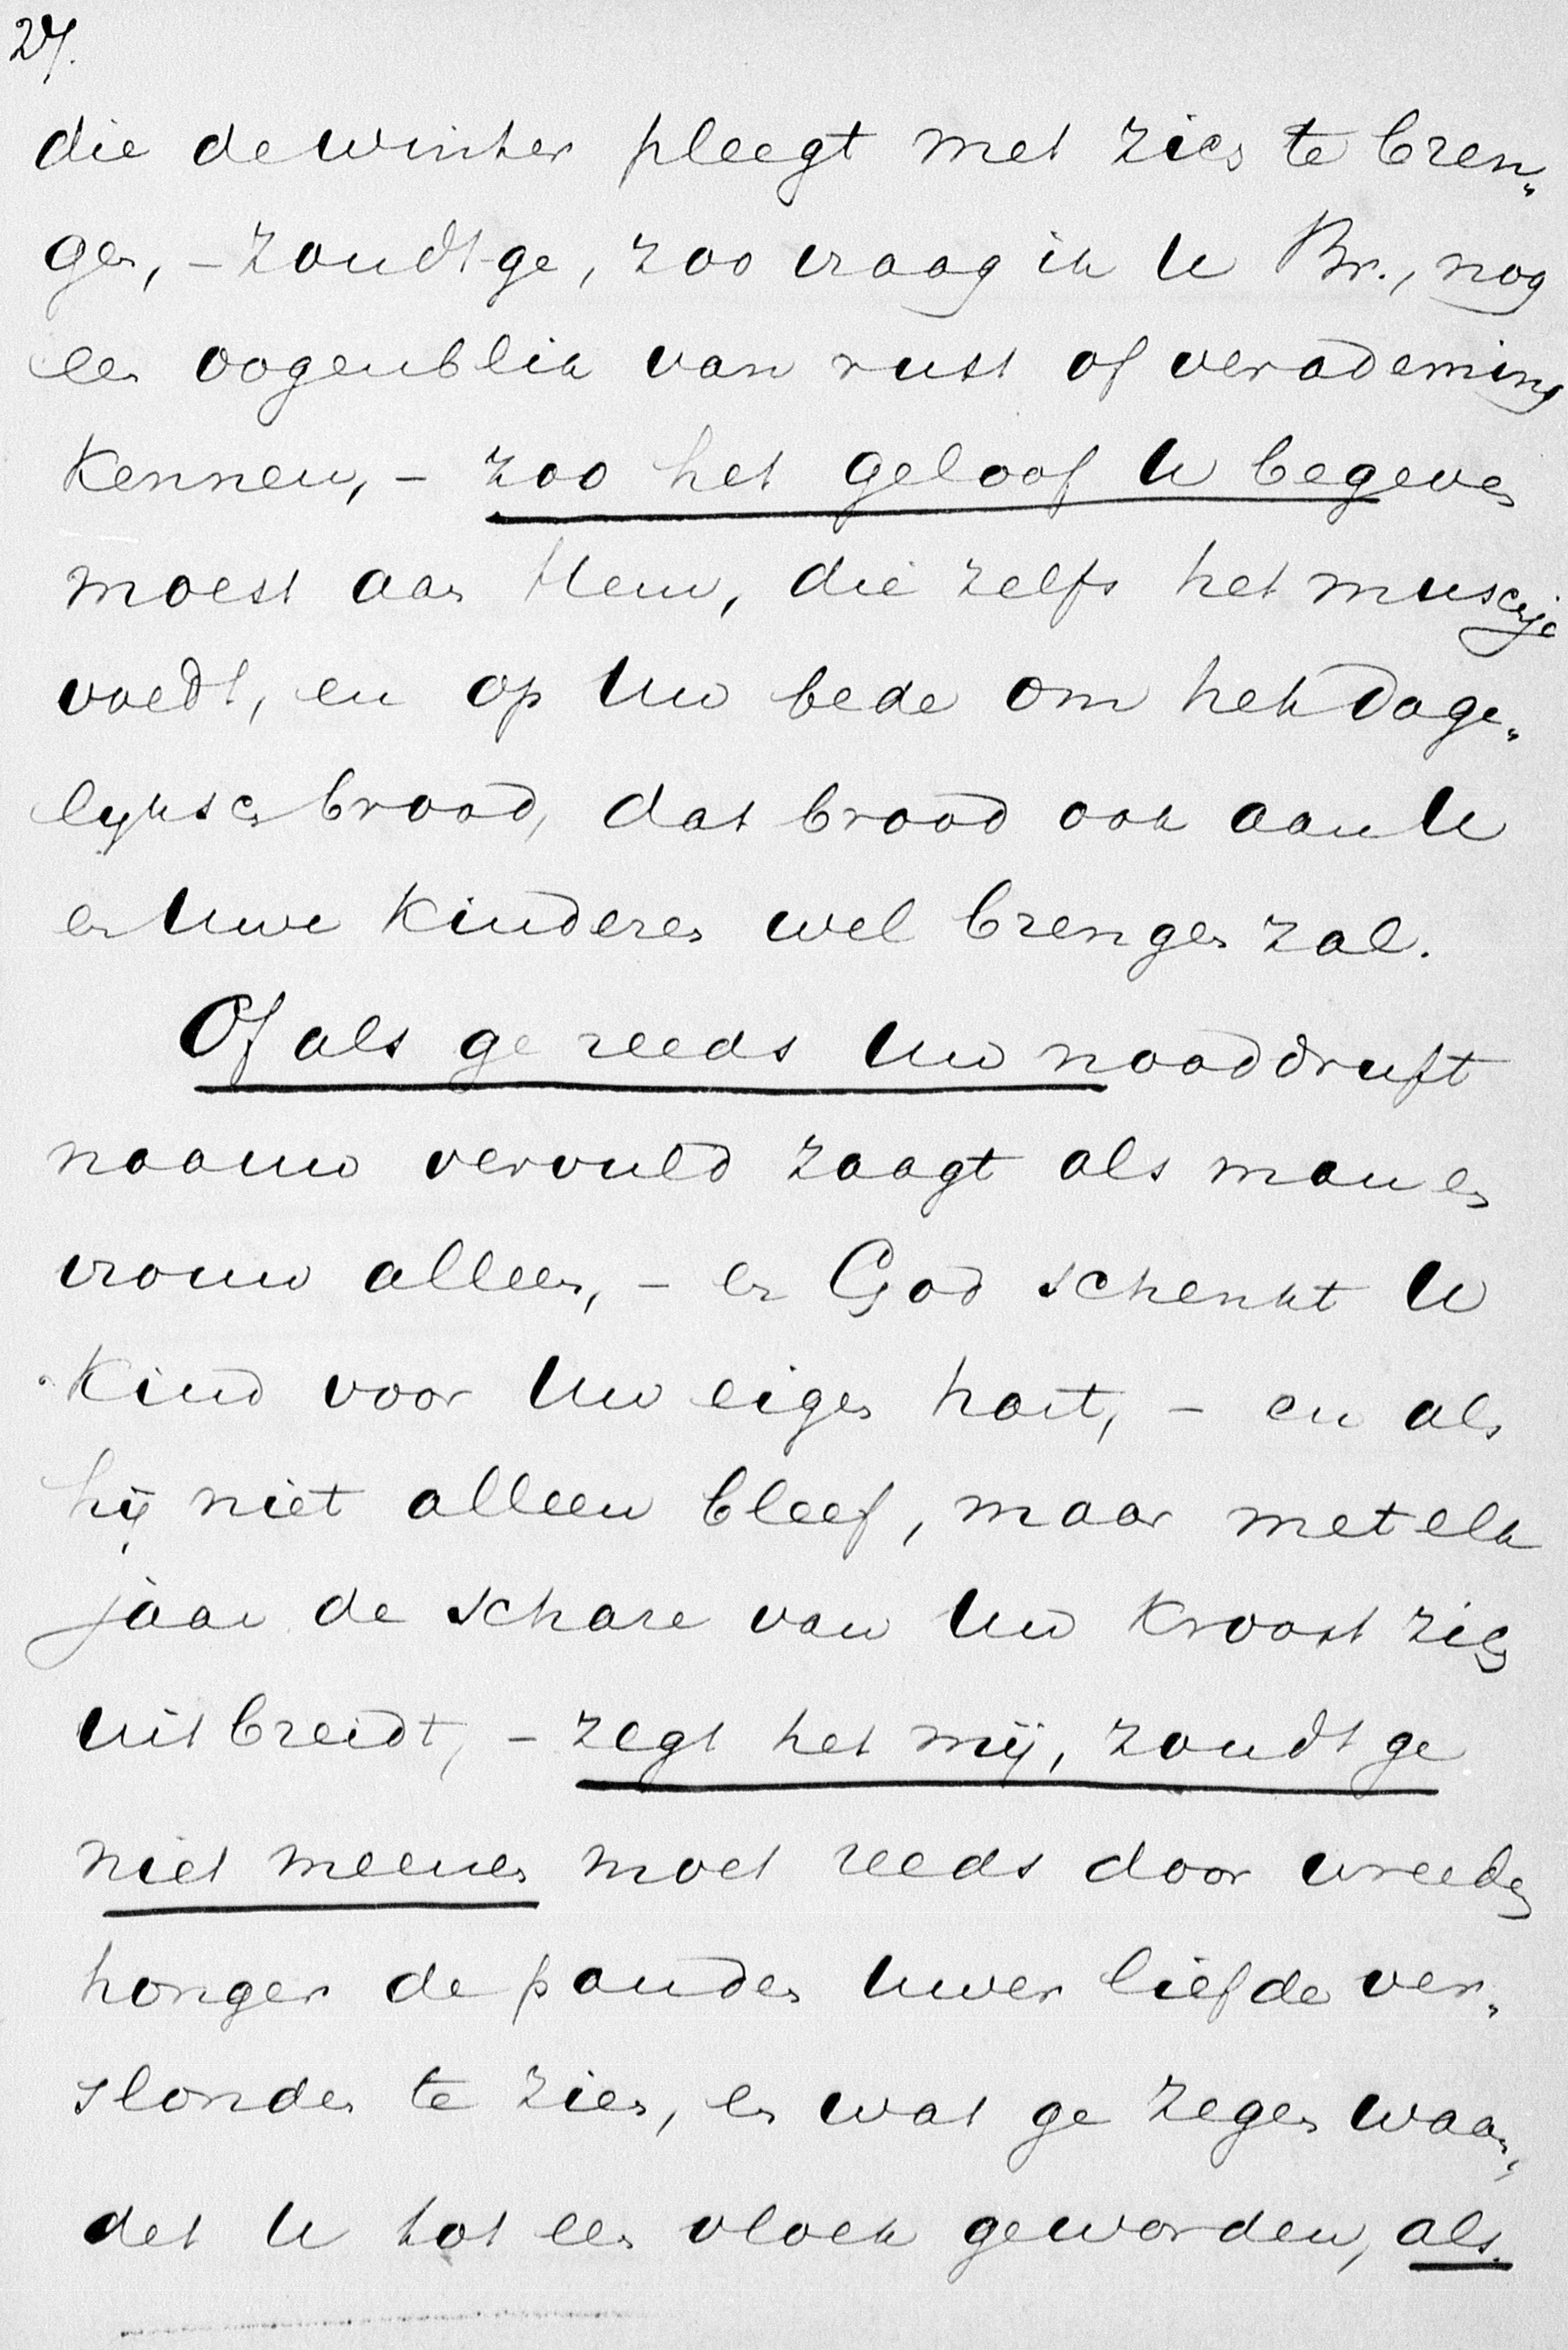 27.
die de winter pleegt met zich te bren„
gen, – zoudt ge, zoo vraag ik U Br., nog
een oogenblik van rust of verademing
kennen, – zoo het geloof U begeven
moest aan Hem, die zelfs het muschje
voedt, en op Uw bede om het dage„
lyksch brood, dat brood ook aan U
en Uwe kinderen wel brengen zal.
Of als ge reeds Uw nooddruft
naauw vervuld zaagt als man en
vrouw alleen, – en God schenkt U
kind voor Uw eigen hart, – en als
hij niet alleen bleef, maar met elk
jaar de schare van Uw kroost zich
uitbreidt, – zegt het mij, zoudt ge
niet meenen moet reeds door wreeden
honger de panden Uwer liefde ver„
slonden te zien, en wat ge zegen waan„
det U tot een vloek geworden, als